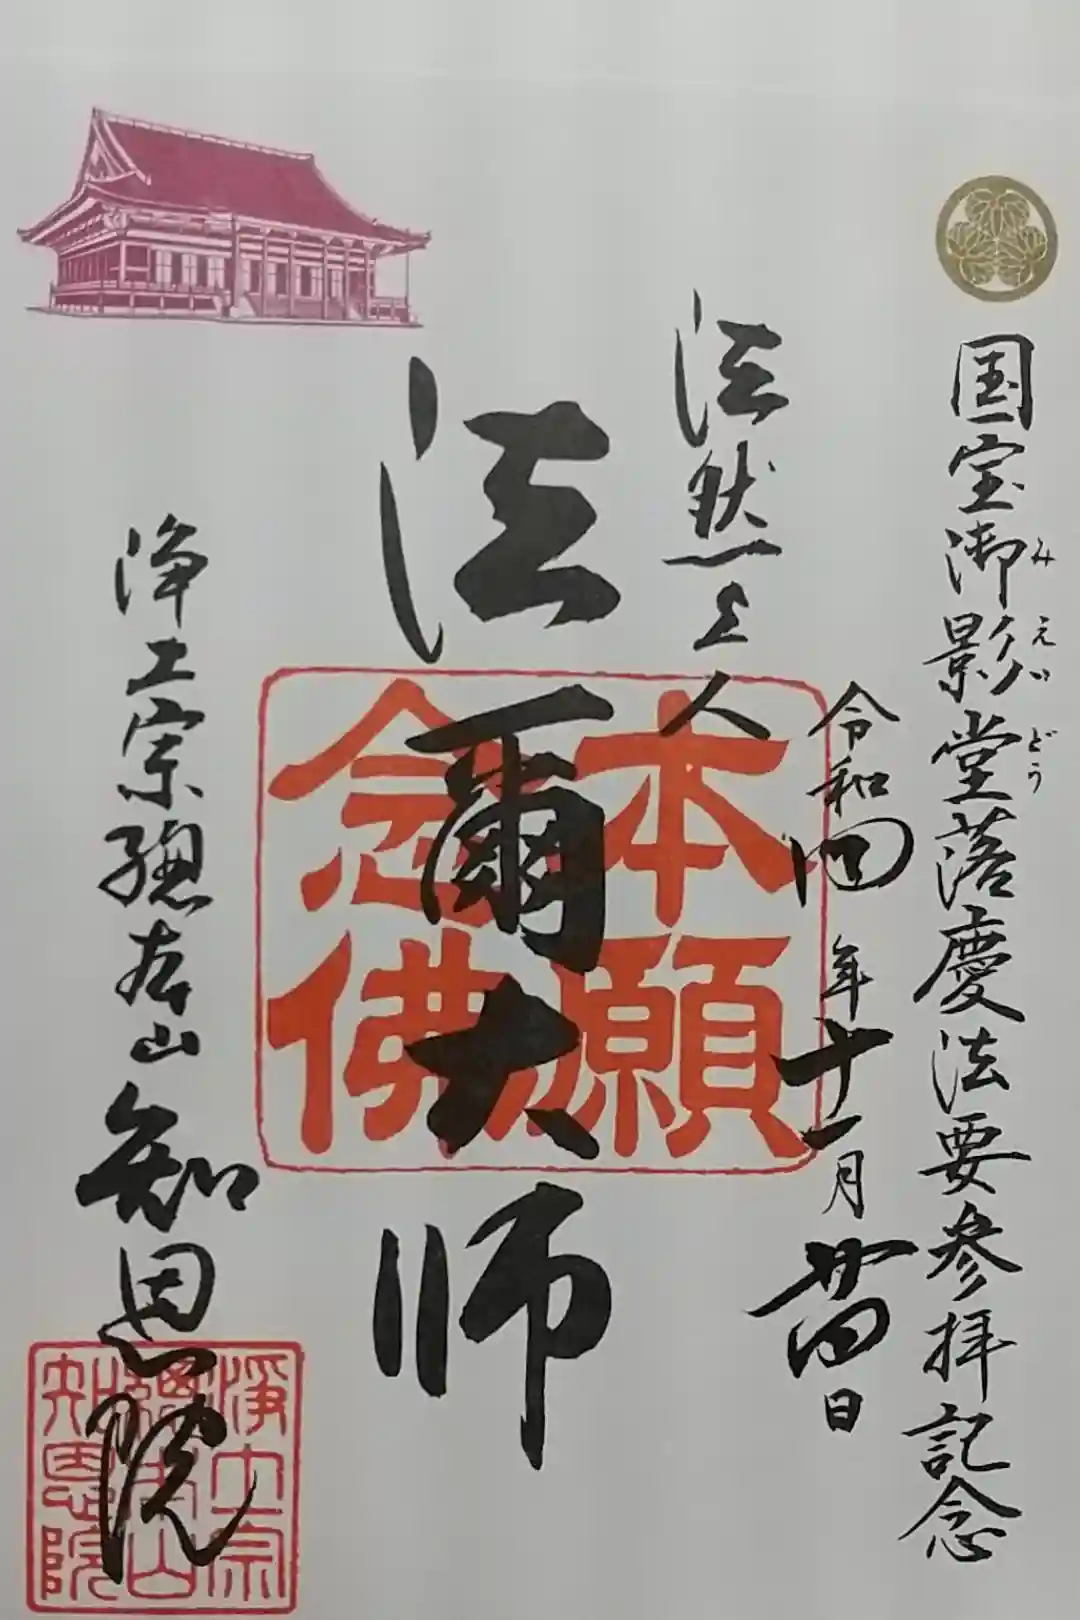 国宝御影堂落慶法要参拝記念
みえいどう
令和四年十一月廿四日
法然上人
法爾大師
本願
念佛
浄土宗總本山知恩院
浄土宗
總本山
知恩院